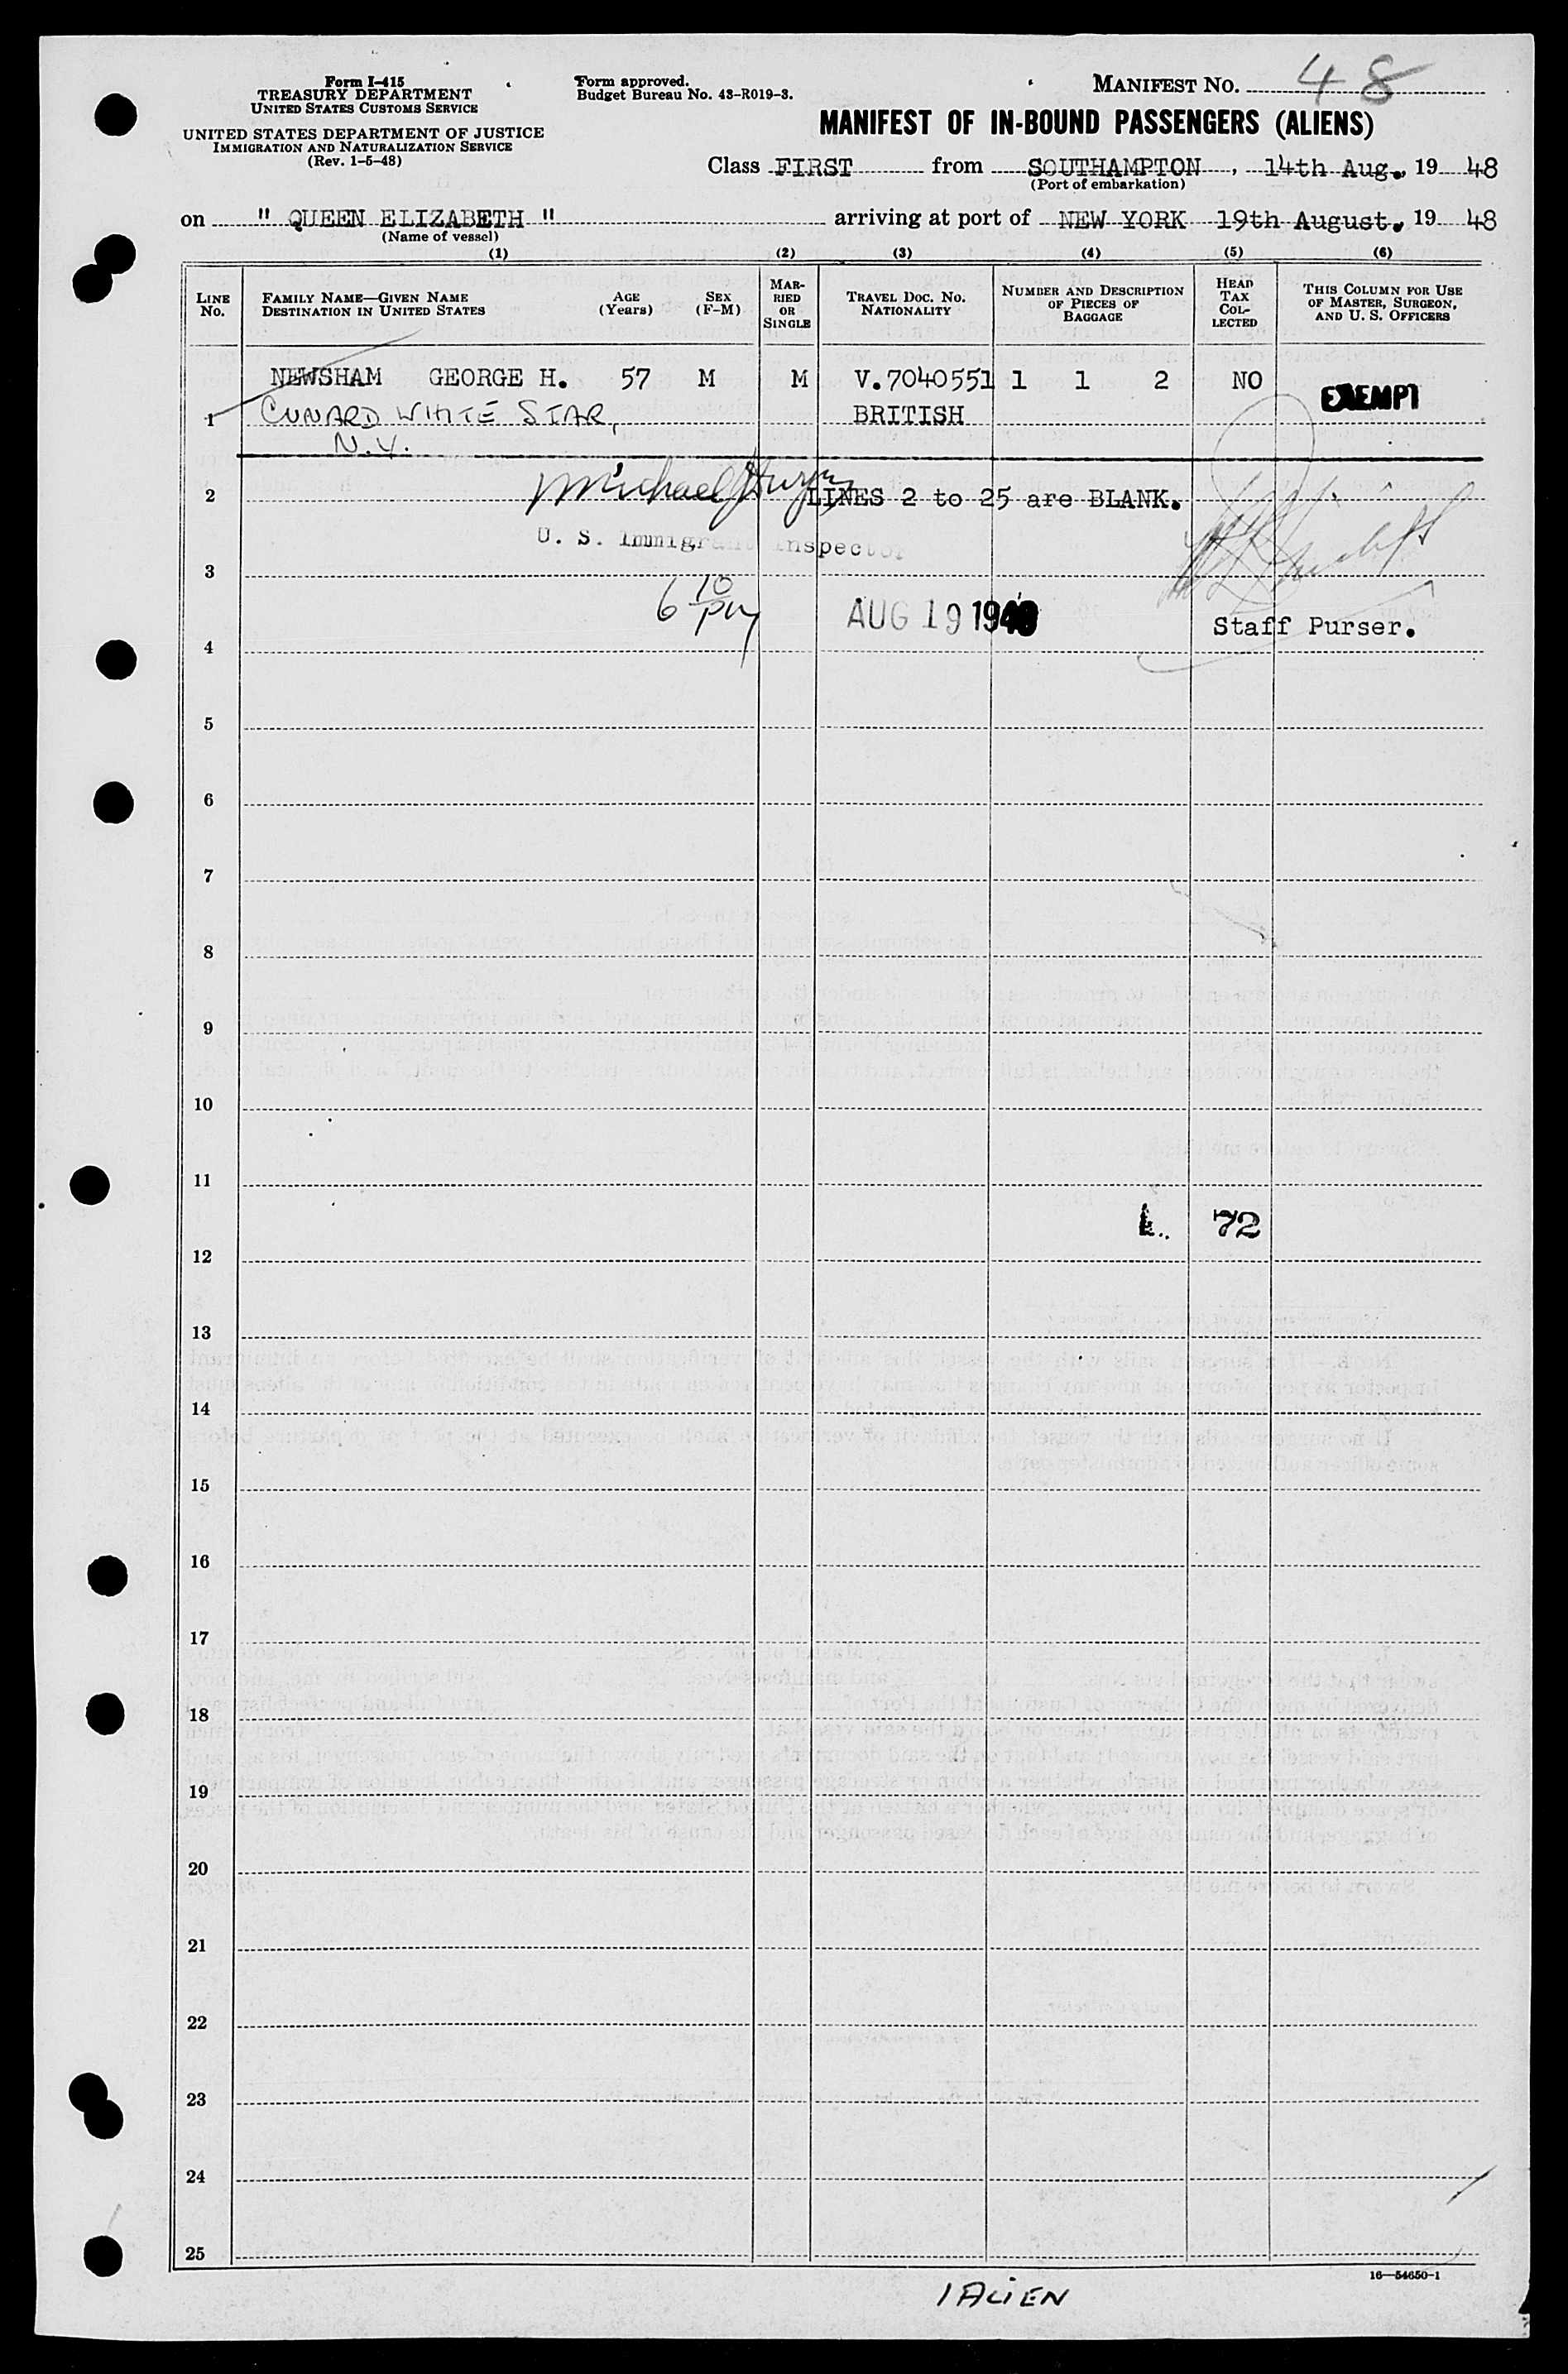 Form I-415
TREASURY DEPARTMENT
UNITED STATES CUSTOMS SERVICE
UNITED STATES DEPARTMENT OF JUSTICE
IMMIGRATION AND NATURALIZATION SERVICE
(Rev. 1-5-48)
Form approved.
Budget Bureau No. 43-R019-3.
MANIFEST NO. 48
MANIFEST OF IN-BOUND PASSENGERS (ALIENS)
Class FIRST from SOUTHAMPTON, 14th Aug., 19 48
(Port of embarkation)
on " QUEEN ELIZABETH " arriving at port of NEW YORK 19th August, 19 48
(Name of vessel)
(1) (2) (3) (4) (5) (6)
LINE No. FAMILY NAME—GIVEN NAME DESTINATION IN UNITED STATES AGE (Years) SEX (F-M) MARRIED OR SINGLE TRAVEL DOC. NO. NATIONALITY NUMBER AND DESCRIPTION OF PIECES OF BAGGAGE HEAD TAX COLLECTED THIS COLUMN FOR USE OF MASTER, SURGEON, AND U. S. OFFICERS
NEWSHAM GEORGE H. 57 M M V.7040551 1 1 2 NO EXEMPT
1 CUNARD WHITE STAR, BRITISH
N.Y.
2 Michael LINES 2 to 25 are BLANK.
U. S. Immigrant Inspector
3
6 10 pm AUG 19 1948 Staff Purser.
4
5
6
7
8
9
10
11
72
12
13
14
15
16
17
18
19
20
21
22
23
24
25
16—54650-1
1 ALIEN